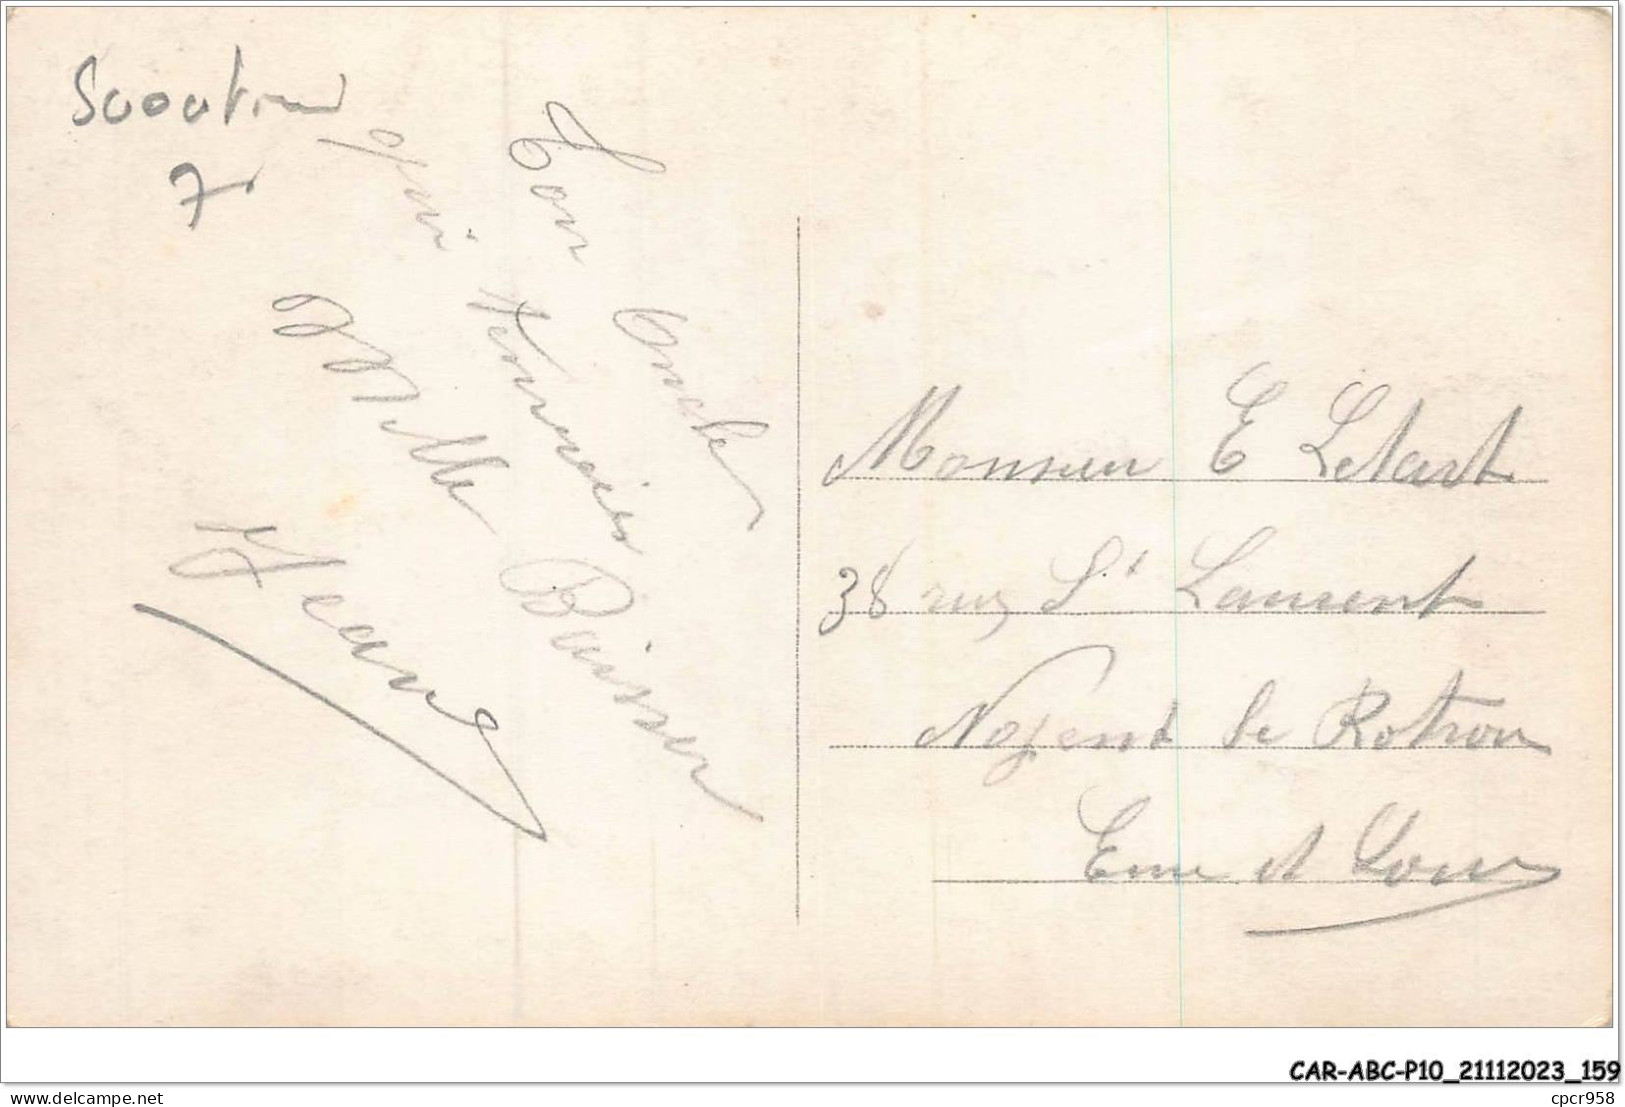 7
Ton Oncle
qui t'envoies
Mille Baisser
Jean
Monsieur E Letart
38 rue St Laurent
Nogent le Rotrou
Eure et Loir
CAR-ABC-P10_21112023_159
www.delcampe.net
cpcr958